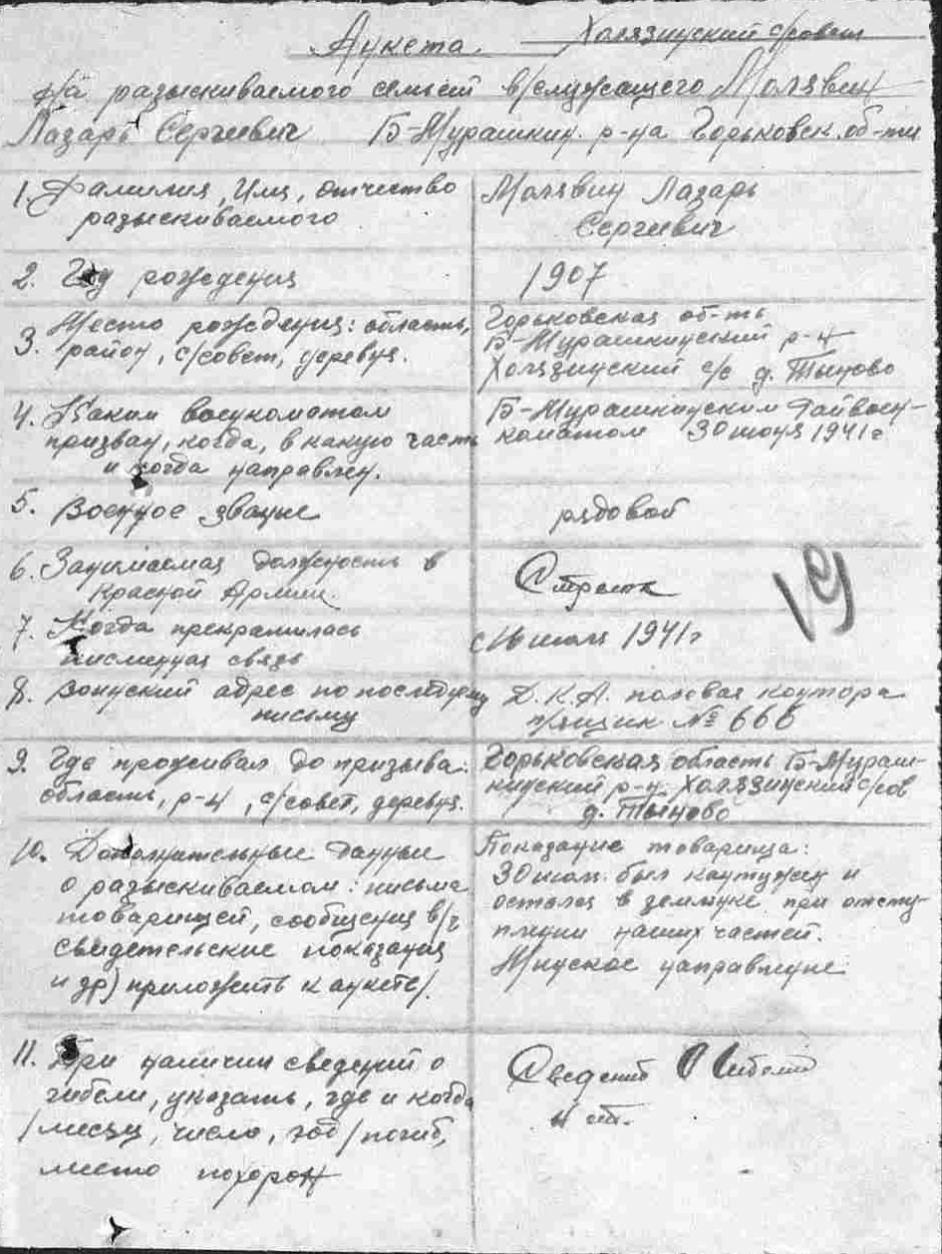 Анкета
Холязинский с/совет
на разыскиваемого семьей в/служащего Молявин
Лазарь Сергеевич Б-Мурашкин. р-на Горьковск. об-ти
1. Фамилия, Имя, отчество
разыскиваемого
Молявин Лазарь
Сергеевич
2. Год рождения
1907
3. Место рождения: область,
район, с/совет, деревня.
Горьковская об-ть
Б-Мурашкинский р-н
Холязинский с/с д. Тыново
4. Каким военкоматом
призван, когда, в какую часть
и когда направлен.
Б-Мурашкинским Райвоен-
коматом 30 июня 1941 г
5. Военное звание
рядовой
6. Занимаемая должность в
Красной Армии.
Стрелок
19
7. Когда прекратилась
письменная связь
с 16 июля 1941 г
8. Воинский адрес по последнему
письму
Д.К.А. полевая контора
п/ящик № 666
9. Где проживал до призыва:
область, р-н, с/совет, деревня.
Горьковская область Б-Мураш-
кинский р-н Холязинский с/сов
д. Тыново
10. Дополнительные данные
о разыскиваемом: письма
товарищей, сообщения в/ч
свидетельские показания
и др) приложить к анкете/.
Показание товарища:
30 июл. был контужен и
остался в землянке при отсту-
плении наших частей.
Минское направление
11. При наличии сведений о
гибели, указать, где и когда
/месяц, число, год/ погиб,
место похорон
Сведений о гибели
нет.